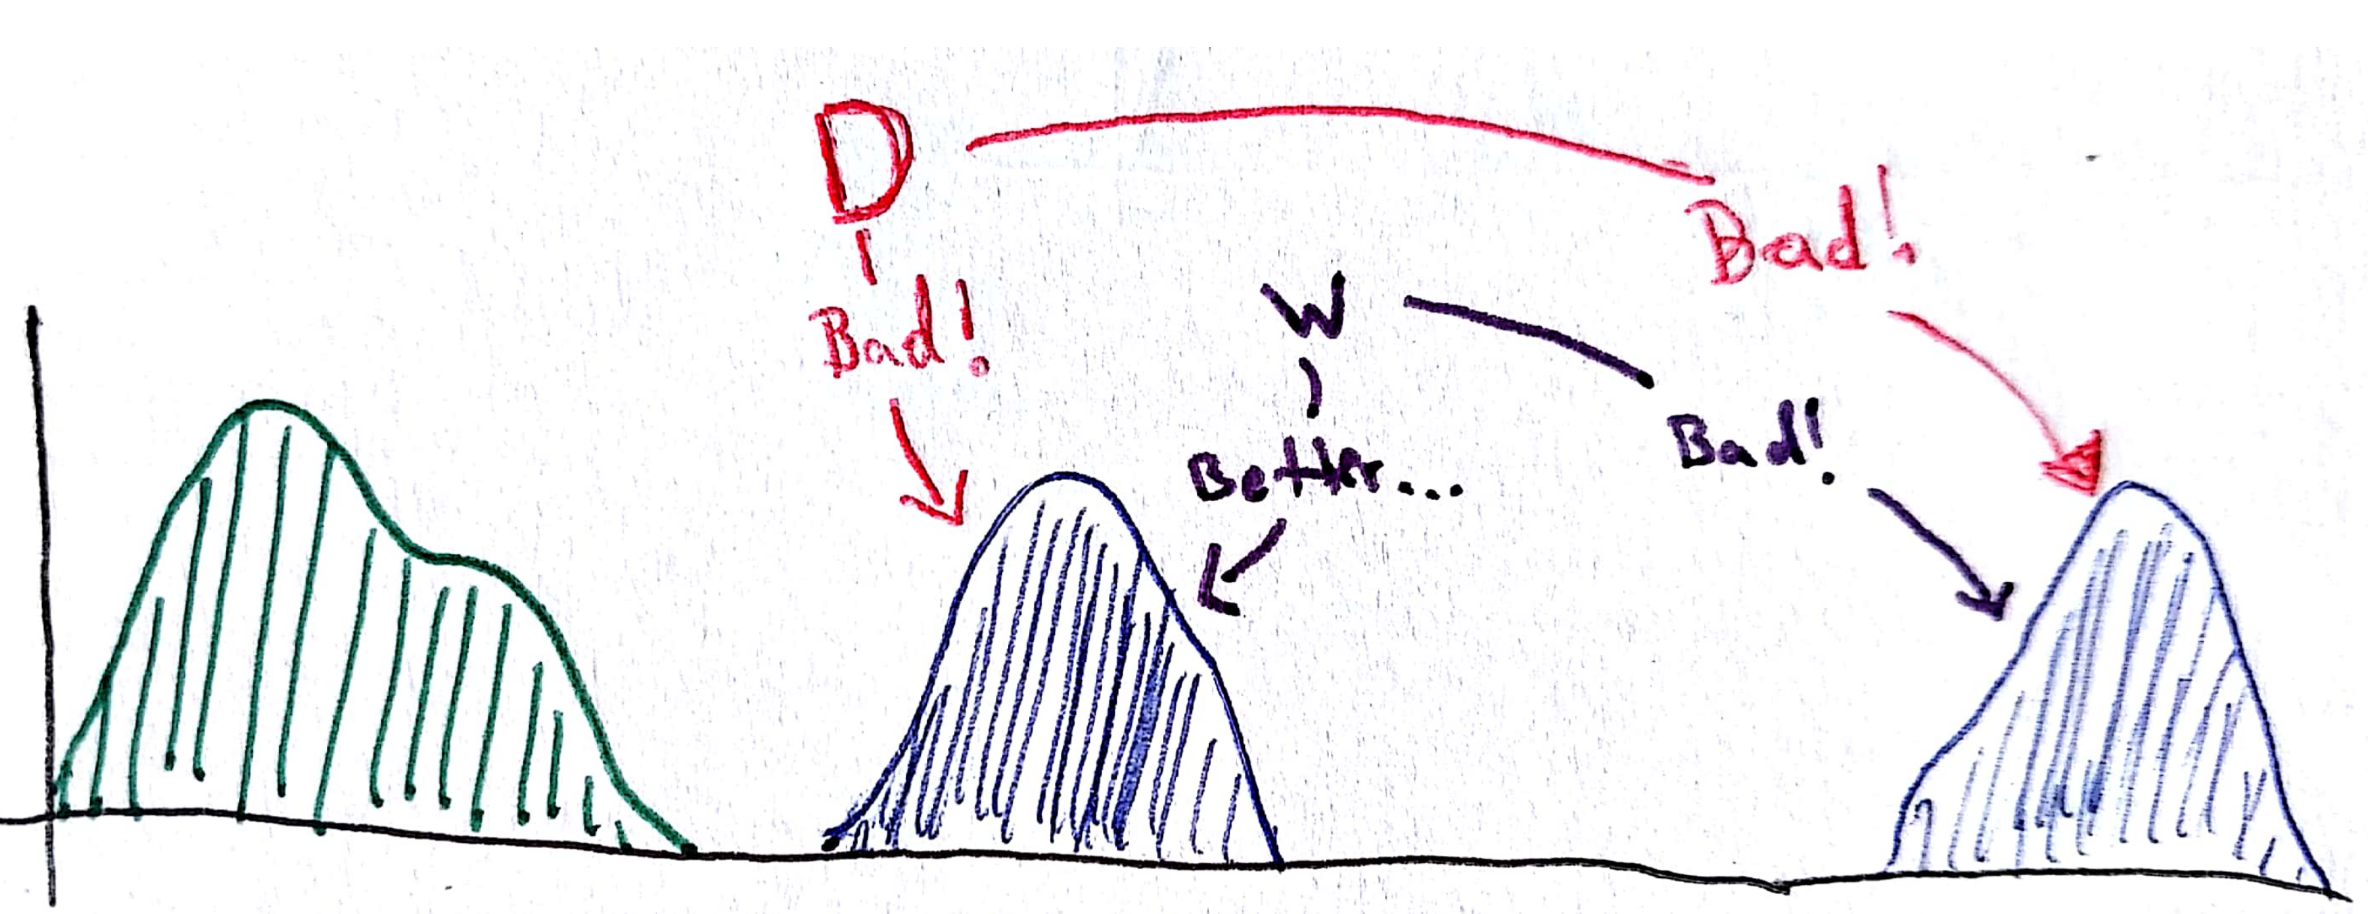 D
Bad!
Bad!
W
Better...
Bad!